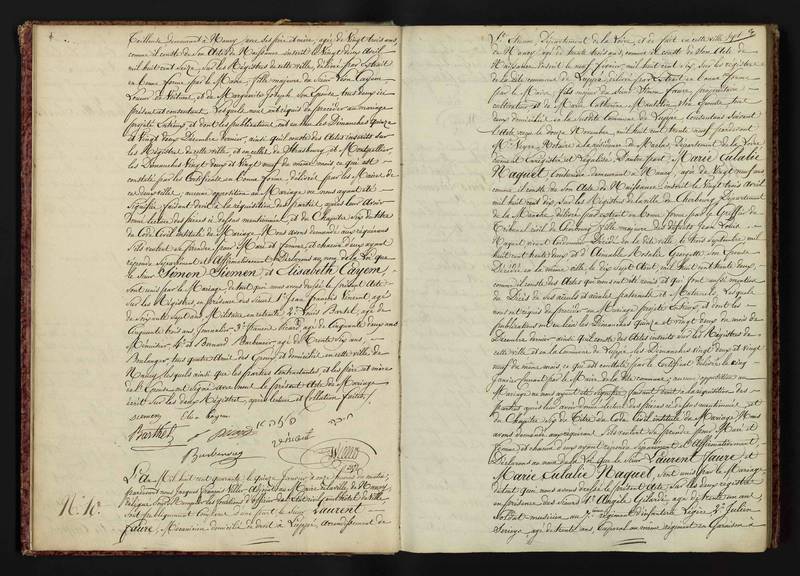 Tailleuse demeurant à Nancy avec ses père et mère, agée de Vingt trois ans,
comme il conste de son Acte de Naissance inscrit le Vingt deux Avril
mil huit cent Seize, sur les Registres de cette ville, délivré par Extrait
en bonne forme par le Maire, fille majeure de Sieur Cayem
et de Marguerite Joseph son Epouse tous deux ici
présent et consentant. Lesquels nous ont requis de procéder au mariage
projeté entr'eux et dont les publications ont eu lieu les Dimanches quinze
et Vingt deux Décembre dernier, ainsi qu'il conste des Actes inscrits sur
les Registres de cette ville, et en celles de Strasbourg et Montpellier
les Dimanches Vingt deux et Vingt neuf du même mois ce qui est
constaté par les Certificats en bonne forme, délivrés par les Maires de
ces deux villes, aucune opposition au Mariage ne nous ayant été
signifiée faisant droit à la réquisition des parties, après leur avoir
donné lecture des pièces ci dessus mentionnées, et du Chapitre Six du titre
du Code Civil intitulé du Mariage. Nous avons demandé aux requérans
s'ils veulent se prendre pour Mari et femme, et chacun d'eux ayant
répondu séparément et Affirmativement, Déclarons au nom de la Loi que
le Sieur Simon Siemen et Elisabeth Cayem,
sont unis par le Mariage de tout quoi nous avons dressé le présent Acte
sur les Registres, en présence des Sieurs 1° Jean François Vincent, agé
de Soixante Sept ans Militaire en retraite, 2° Louis Barthel, agé de
Cinquante trois ans, 3° Picard, agé de Cinquante deux ans
4° et Bernard agé de Trente Six ans,
Boulanger, tous quatre Amis des Epoux et domiciliés en cette ville de
Nancy, lesquels ainsi que les parties contractantes et les père et mère
de l'Epouse ont Signé avec nous le présent Acte de Mariage
écrit sur les deux Registres, après lecture et Collation faites.
siemen Elise Cayem
Barthel picard
vincent
N° 10.
L'An Mil huit cent quarante le quinze Janvier à onze heures du matin,
pardevant nous Jacques François Adjoint au Maire de la ville de Nancy
délégué pour remplir les fonctions d'Officier de l'Etat civil, en l'hôtel de Ville
sont publiquement Comparus d'une part le Sieur Laurent
Faure, Musicien domicilié de droit à arrondissement de
St. Etienne, Département de la Loire, et de fait en cette ville
de Nancy, agé de trente trois ans, comme il conste de son Acte de
Naissance inscrit le neuf Février, mil huit cent Six, sur les registres
de la dite commune de délivré par Extrait en bonne forme
par le Maire, fils majeur de Sieur Faure, propriétaire
cultivateur et de Marie Catherine son Epouse tous
deux domiciliés en la susdite Commune de consentant suivant
l'Acte reçu le douze Novembre, mil huit cent trente neuf pardevant
Me. Notaire à la résidence de Marlhes, Département de la Loire
dument Enregistré et légalisé. D'autre part Marie Eulalie
Naquet Couturière demeurant à Nancy, agée de Vingt neuf ans
comme il conste de son Acte de Naissance inscrit le Vingt trois Avril
mil huit cent dix, sur les Registres de la ville de Cherbourg Département
de la Manche, délivré par extrait en bonne forme par le Greffier du
Tribunal civil de Cherbourg, fille majeure des défunts Jean Louis
Naquet vivant Cordonnier Décédé en la dite ville, le trois Septembre mil
huit cent trente deux et d'Aimable Rosalie son Epouse
Décédée en la même ville, le dix Sept Août, mil huit cent trente deux,
comme il conste des Actes qui nous ont été remis et qui font aussi mention
du Décès de ses aïeuls et aïeules paternels et Maternels. Lesquels
nous ont requis de procéder au Mariage projeté entr'eux, et dont les
publications ont eu lieu les Dimanches quinze et Vingt deux du mois de
Décembre dernier ainsi qu'il conste des Actes inscrits sur les Registres de
cette ville et en la Commune de les Dimanches Vingt deux et Vingt
neuf du même mois, ce qui est constaté par le Certificat délivré le cinq
Janvier suivant par le Maire de la dite commune; aucune opposition au
Mariage ne nous ayant été signifiée, faisant droit à la réquisition des
parties, après leur avoir donné lecture des pièces ci dessus mentionnées, et
du Chapitre Six du Titre du Code Civil intitulé du Mariage. Nous
avons demandé aux requérans s'ils veulent se prendre pour Mari et
femme, et chacun d'eux ayant répondu séparément et Affirmativement,
Déclarons au nom de la Loi que le Sieur Laurent Faure, et
Marie Eulalie Naquet, sont unis par le Mariage,
de tout quoi nous avons dressé le présent Acte sur les deux registres
en présence des Sieurs 1° Angelo Gilardi, agé de trente un ans,
Soldat-musicien au 7ème régiment d'infanterie Légère, 2° Julien
agé de trente ans, Caporal au même régiment en Garnison à